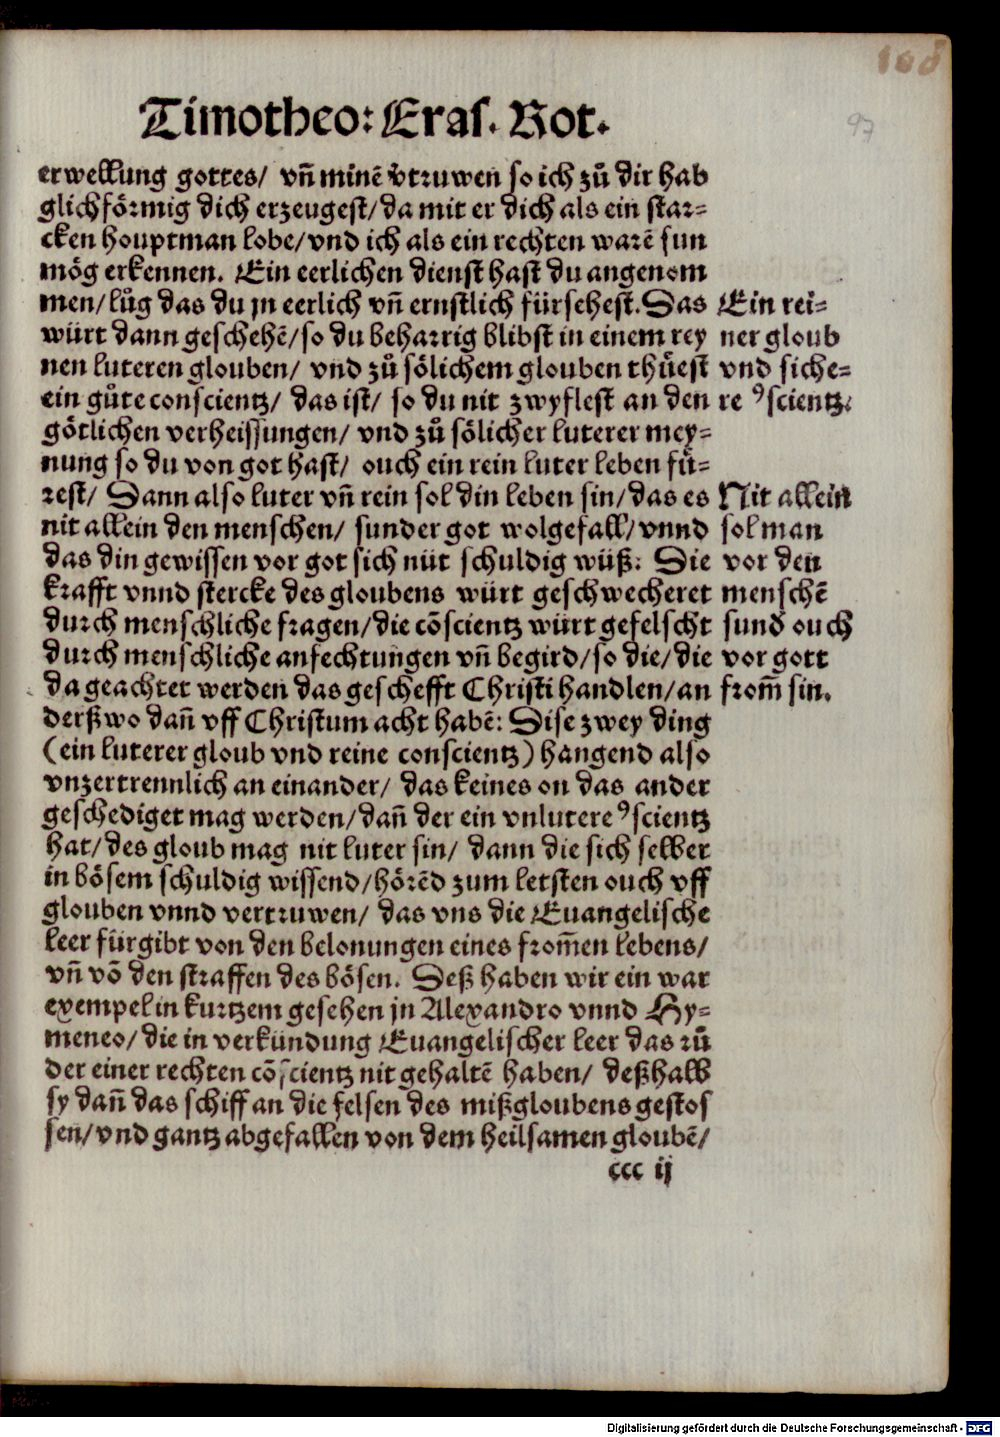 108
97
Timotheo: Eras. Rot.
erwellung gottes/ vñ minẽ v̈truwen so ich zů dir hab
glichförmig dich erzeugest/ da mit er dich als ein star⸗
cken houptman lobe/ vnd ich als ein rechten warẽ sun
mög erkennen. Ein eerlichen dienst hast du angenom
men/ lůg das du jn eerlich vñ ernstlich fürsehest. Das
würt dann geschehẽ/ so du beharrig blibst in einem rey
nen luteren glouben/ vnd zů sölichem glouben thüest
ein gůte conscientz/ das ist/ so du nit zwyflest an den
götlichen verheissungen/ vnd zů sölicher luterer mey⸗
nung so du von got hast/ ouch ein rein luter leben fü⸗
rest/ Dann also luter vñ rein sol din leben sin/ das es
nit allein den menschen/ sunder got wolgefall/ vnnd
das din gewissen vor got sich nüt schuldig wüß: Die
krafft vnnd stercke des gloubens würt geschwecheret
durch menschliche fragen/ die cõscientz würt gefelscht
durch menschliche anfechtungen vñ begird/ so die/ die
da geachtet werden das geschefft Christi handlen/ an
derßwo dañ vff Christum acht habẽ: Dise zwey ding
(ein luterer gloub vnd reine conscientz) hangend also
vnzertrennlich an einander/ das keines on das ander
geschediget mag werden/ dañ der ein vnlutere ꝯscientz
hat/ des gloub mag nit luter sin/ dann die sich selber
in bösem schuldig wissend/ hörẽd zum letsten ouch vff
glouben vnnd vertruwen/ das vns die Euangelische
leer fürgibt von den belonungen eines from̃en lebens/
vñ võ den straffen des bösen. Deß haben wir ein war
exempel in kurtzem gesehen jn Alexandro vnnd Hy⸗
meneo/ die in verkündung Euangelischer leer das rů
der einer rechten cõscientz nit gehaltẽ haben/ deßhalb
sy dañ das schiff an die felsen des mißgloubens gestos
sen/ vnd gantz abgefallen von dem heilsamen gloubẽ/
ccc ij
Ein rei⸗
ner gloub
vnd siche⸗
re ꝯscientz.
Nit allein
sol man
vor den
menschẽ
sund̕ ouch
vor gott
from̃ sin.
Digitalisierung gefördert durch die Deutsche Forschungsgemeinschaft - DFG